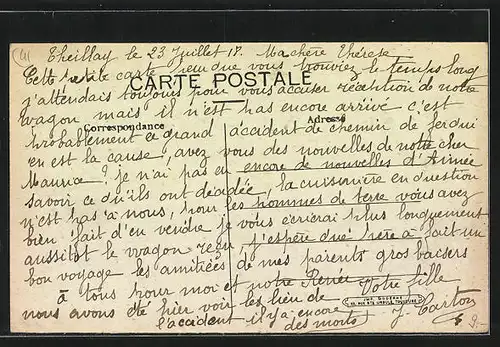 41
Theillay le 23 Juillet 18. Ma chère Thérèse
Cette petite carte peur que vous trouviez le temps long
CARTE POSTALE
j'attendais toujours pour vous accuser réception de notre
wagon mais il n'est pas encore arrivé c'est
Correspondance
Adresse
probablement ce grand accident de chemin de fer qui
en est la cause, avez vous des nouvelles de notre cher
Maurice? je n'ai pas eu encore de nouvelles d'Aimée
savoir ce qu'ils ont décidée, la cuisinière en question
n'est pas à nous, pour les pommes de terre vous avez
bien fait d'en vendre je vous écrirai plus longuement
aussitôt le wagon reçu, j'espère que père a fait un
bon voyage les amitiées de mes parents gros baisers
à tous pour moi et notre Renée Votre fille
nous avons été hier voir les lieu de
l'accident il y a encore
des morts J. Carton
9.-